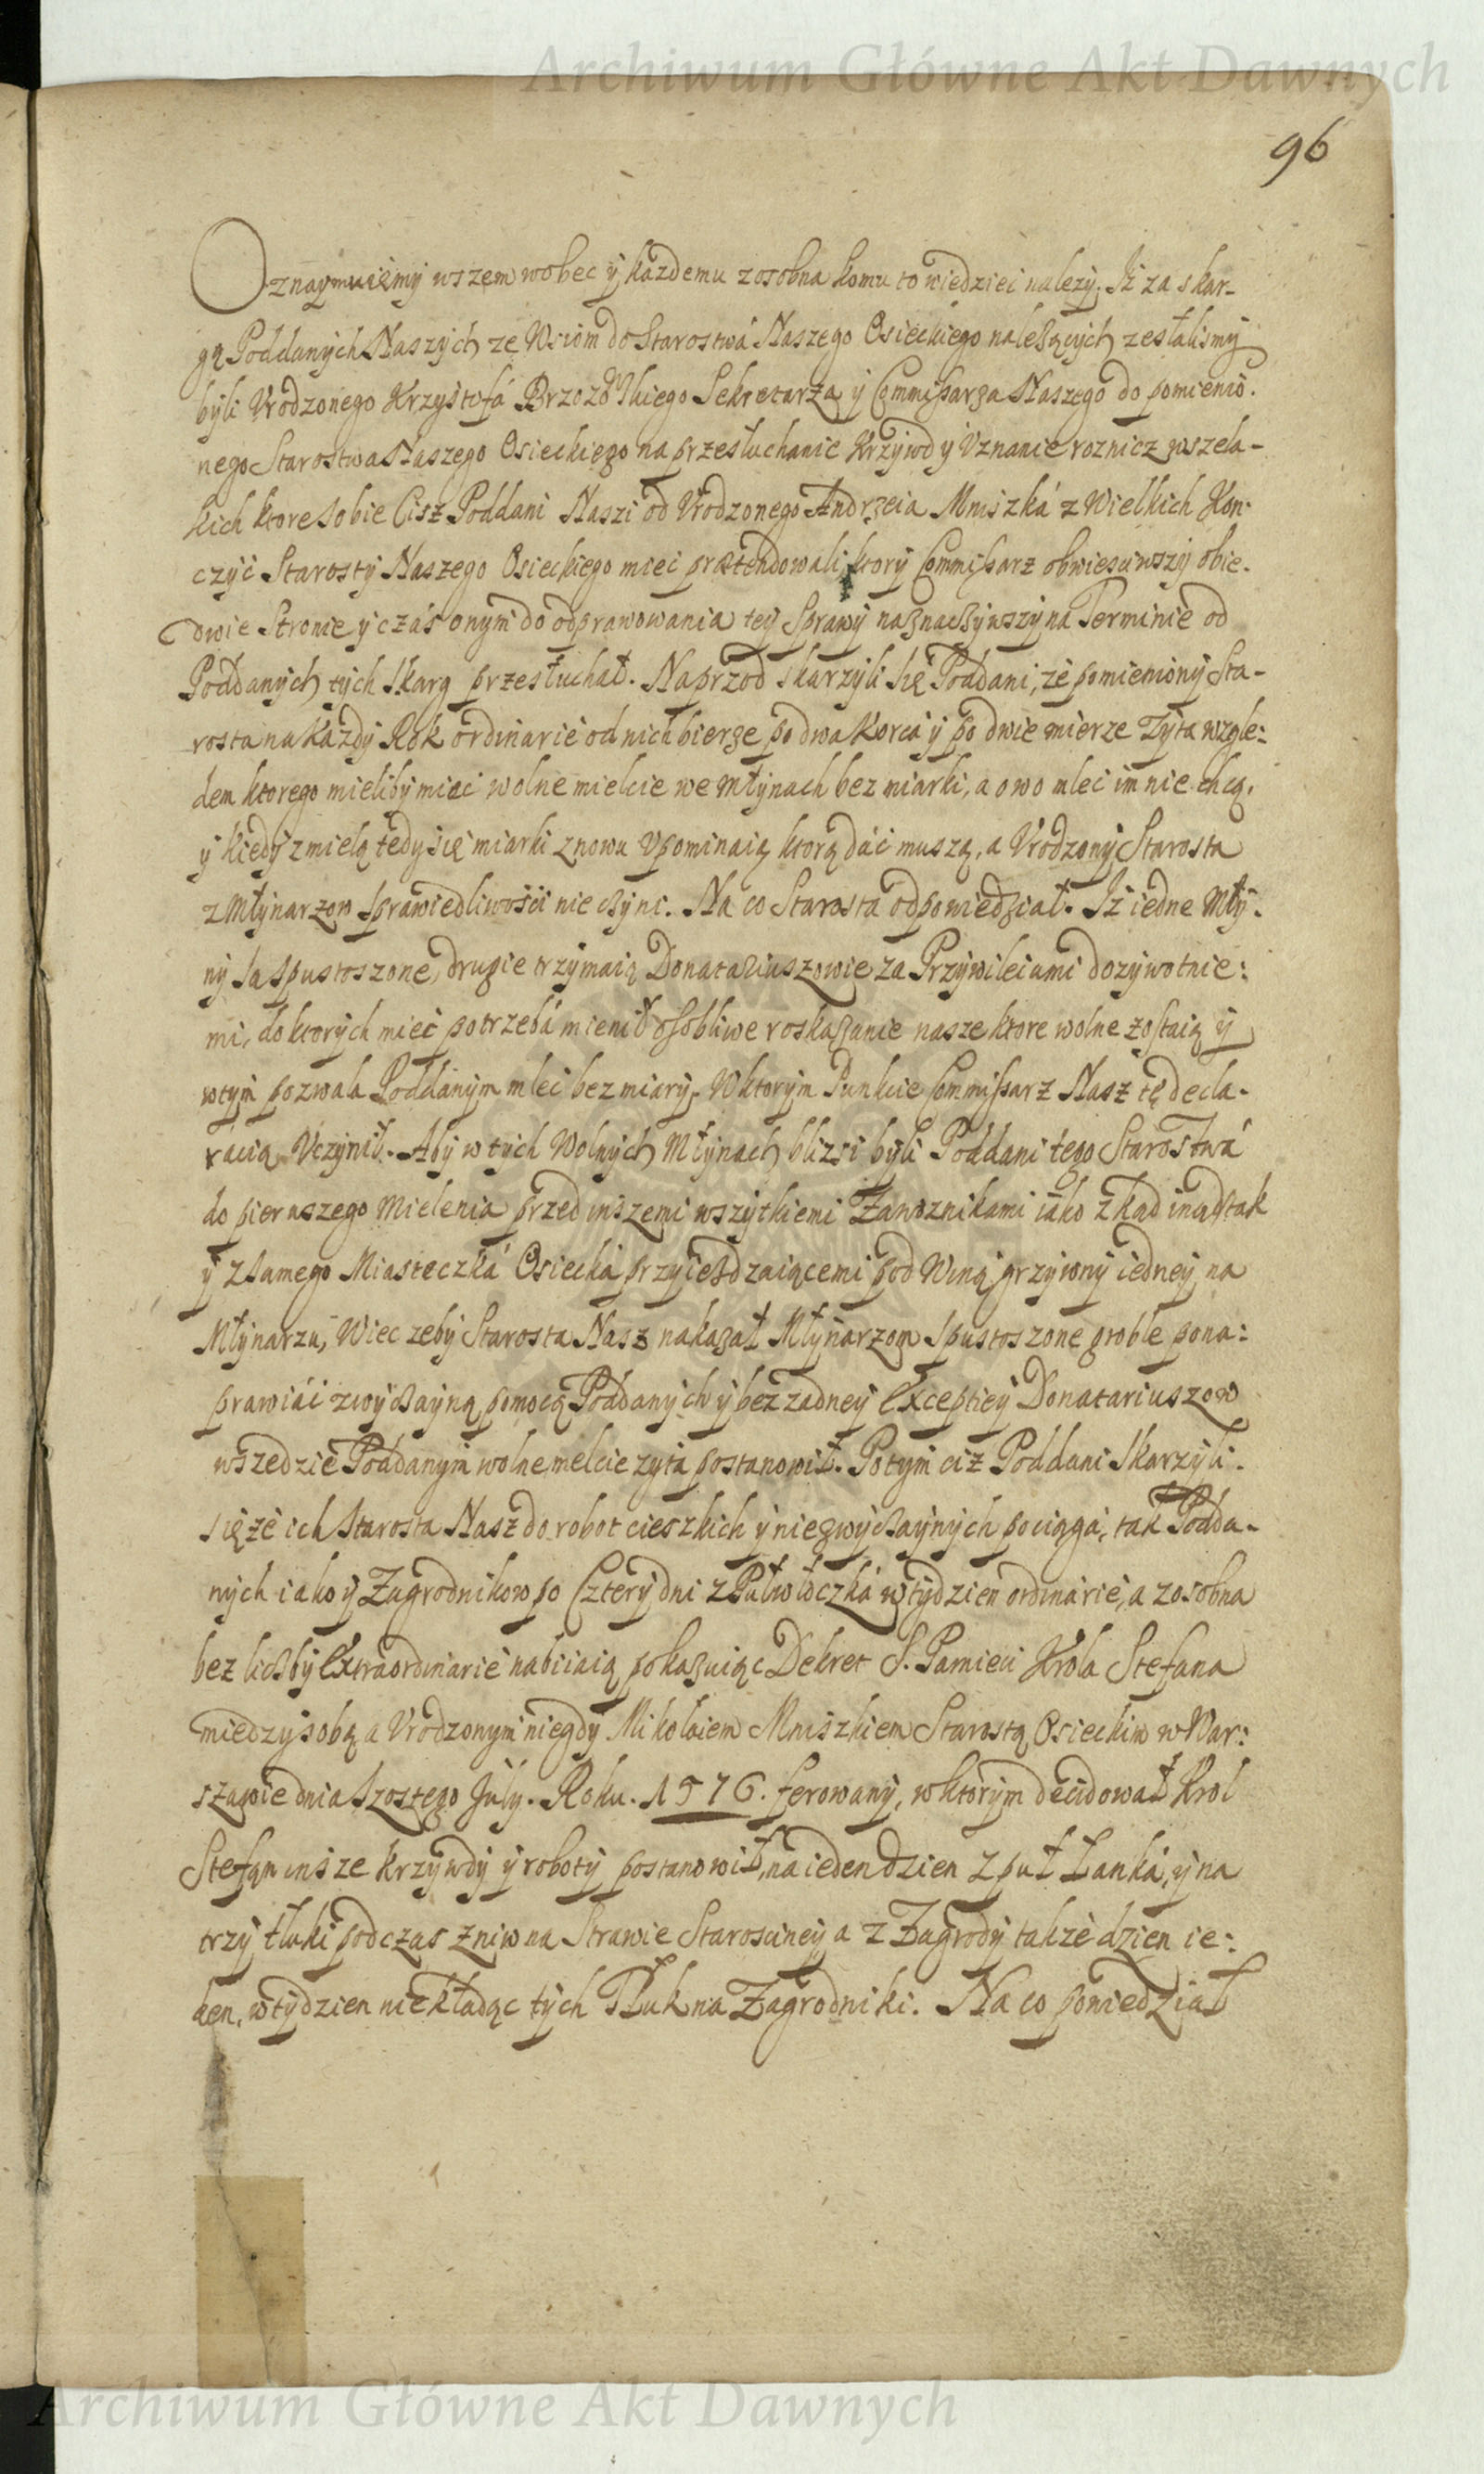 Archiwum Główne Akt Dawnych
96
Oznaymuiemy wszem wobec y każdemu zosobna komu to wiedziei należy. Iż za skar-
gą Poddanych Naszych ze Wsiom do Starostwá Naszego Osieckiego należących zesłalismy
byli Vrodzonego Krzysztofá Brzozowskiego Sekretarza y Commissarza Naszego do pomienio.
nego Starostwa Naszego Osieckiego na przesłuchanie Krzywd y Vznanie roznicz wszela-
kich ktore sobie Cisz Poddani Naszi od Vrodzonego Andrzeia Mniszká z Wielkich Kon-
czyc Starosty Naszego Osieckiego miec prætendowali, ktory Commissarz obwiesciwszy obie-
dwie Stronie y czás onym do odprawowania tey Sprawy naznaczywszy na Terminie od
Poddanych tych skarg przesłuchał. Naprzod skarzyli się Poddani, że pomieniony Sta-
rosta na każdy Rok ordinarie od nich bierze po dwa Korca y po dwie mierze Żyta wzgle:
dem ktorego mieliby miec wolne mielcie we Młynach bez miarki, a owo mlec im nie chcą.
y kiedy zmielą tedy się miarki znowu vpominaią ktorą dáć muszą, a Vrodzony Starosta
z Młynarzow sprawiedliwości nie czyni. Na co Starosta odpowiedział. Iż iedne Mły-
ny są spustoszone, drugie trzymaią Donatariuszowie za Przywileiami dożywotnie:
mi, do ktorych mieć potrzebá mienił osobliwe roskazanie nasze ktore wolne zostaią y
wtym pozwala Poddanym mleć bez miary. Wktorym Punkcie Commissarz Nasz tę decla-
racią Vczynił. Aby w tych Wolnych Młynach blizsi byli Poddani tego Starostwá
do pierwszego Mielenia przed inszemi wszytkiemi Zawoznikami iáko zkąd inąd tak
y z samego Miasteczká Osiecká przyieżdzaiącemi pod Winą grzywny iedney na
Młynarzu, Wiec żeby Starosta Nasz nakazał Młynarzom spustoszone groble pona:
prawiáć zwyczayną pomocą Poddanych y bez żadney Exceptiey Donatariuszow
wszedzie Poddanym wolne melcie zyta postanowił. Potym ciż Poddani skarzyli.
się że ich Starosta Nasz do robot cieszkich y niezwyczaynych pociąga, tak Podda-
nych iako y Zagrodnikow po Cztery dni z Pułwłoczká wtydzien ordinarie, a zosobna
bez liczby Extraordinarie nabiiaią pokazuiąc Dekret S. Pamieci Krola Stefana
miedzy sobą a Vrodzonym niegdy Mikołaiem Mniszkiem Starostą Osieckim w War:
szawie dnia szostego July. Roku. 1576. ferowany, wktorym decidował Krol
Stefan insze krzywdy y roboty postanowił, na ieden dzien z puł Łanká, y na
trzy tłuki podczas żniw na Strawie Starosciney a z Zagrody także dzien ie:
den, wtydzien nie kładąc tych Tłuk na Zagrodniki. Na co powiedział
Archiwum Główne Akt Dawnych